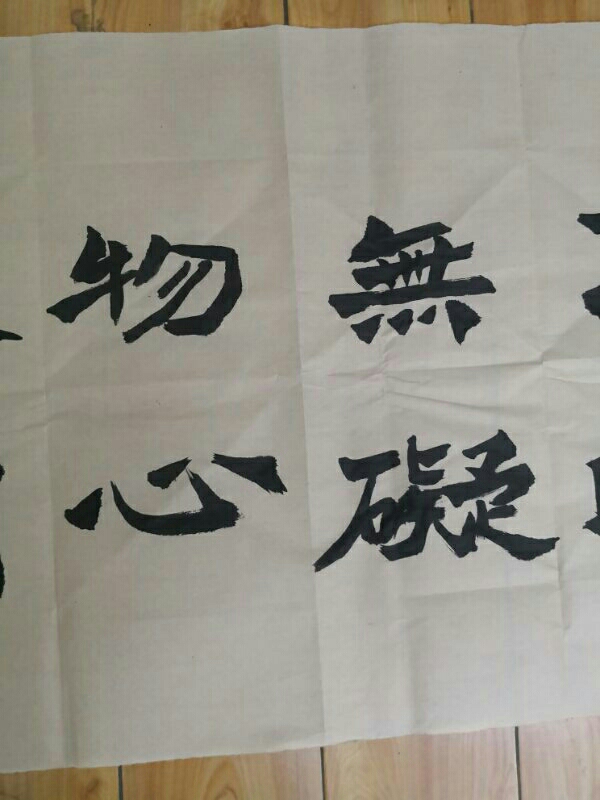 無礙
物心